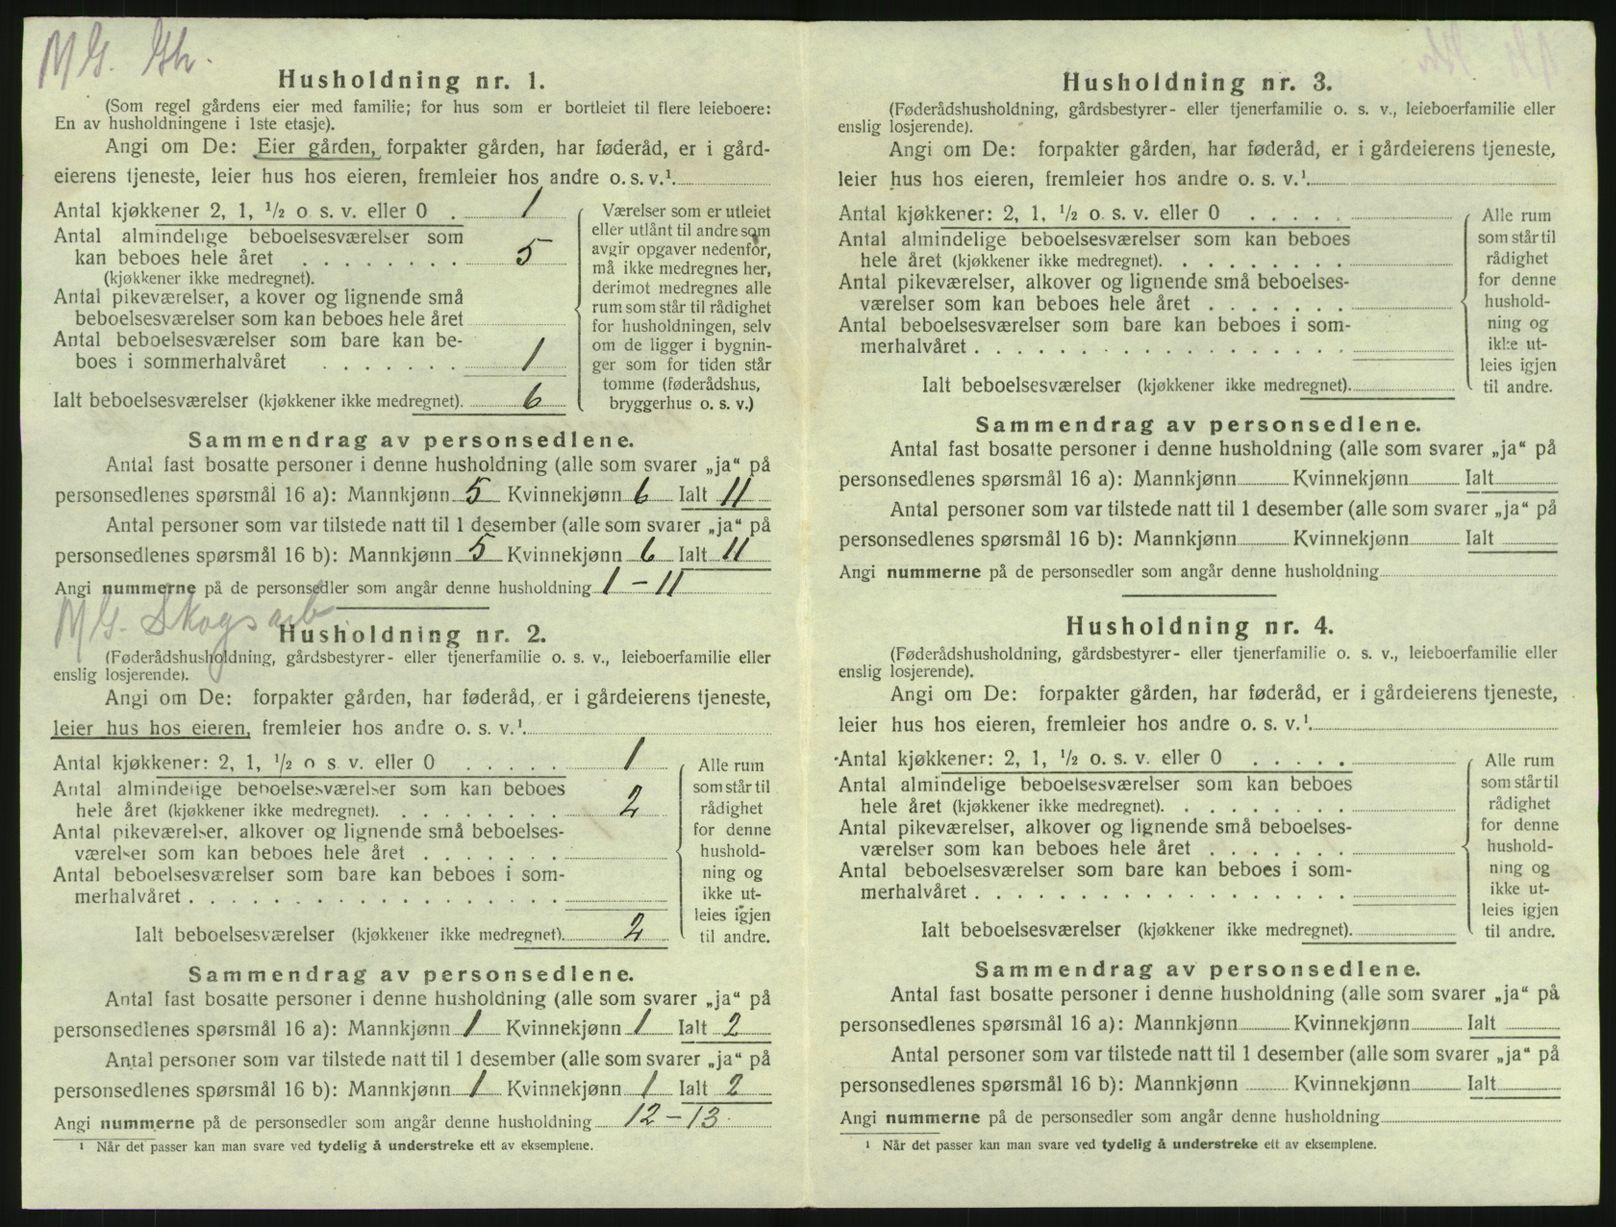 M G. Gbr.
Husholdning nr. 1.
(Som regel gårdens eier med familie; for hus som er bortleiet til flere leieboere:
En av husholdningene i 1ste etasje).
Angi om De: Eier gården, forpakter gården, har føderåd, er i gård-
eierens tjeneste, leier hus hos eieren, fremleier hos andre o. s. v.¹.
Antal kjøkkener 2, 1, ½ o s. v. eller 0 . 1
Antal almindelige beboelsesværelser som
kan beboes hele året . . . . . . . . 5
(kjøkkener ikke medregnet).
Antal pikeværelser, a kover og lignende små
beboelsesværelser som kan beboes hele året
Antal beboelsesværelser som bare kan be-
boes i sommerhalvåret . . . . . . . 1
Ialt beboelsesværelser (kjøkkener ikke medregnet). 6
Værelser som er utleiet
eller utlånt til andre som
avgir opgaver nedenfor,
må ikke medregnes her,
derimot medregnes alle
rum som står til rådighet
for husholdningen, selv
om de ligger i bygnin-
ger som for tiden står
tomme (føderådshus,
bryggerhus o. s. v.)
Sammendrag av personsedlene.
Antal fast bosatte personer i denne husholdning (alle som svarer „ja“ på
personsedlenes spørsmål 16 a): Mannkjønn 5 Kvinnekjønn 6 Ialt 11
Antal personer som var tilstede natt til 1 desember (alle som svarer „ja“ på
personsedlenes spørsmål 16 b): Mannkjønn 5 Kvinnekjønn 6 Ialt 11
Angi nummerne på de personsedler som angår denne husholdning 1 – 11
M G. Skogsarb.
Husholdning nr. 2.
(Føderådshusholdning, gårdsbestyrer- eller tjenerfamilie o. s. v., leieboerfamilie eller
enslig losjerende).
Angi om De: forpakter gården, har føderåd, er i gårdeierens tjeneste,
leier hus hos eieren, fremleier hos andre o. s. v.¹.
Antal kjøkkener: 2, 1, ½ o s. v. eller 0 . . . . . 1
Antal almindelige beboelsesværelser som kan beboes
hele året (kjøkkener ikke medregnet). . . . . . . . . 2
Antal pikeværelser, alkover og lignende små beboelses-
værelser som kan beboes hele året . . . . . . .
Antal beboelsesværelser som bare kan beboes i som-
merhalvåret . . . . . . . . . . . . . . . . . .
Ialt beboelsesværelser (kjøkkener ikke medregnet). 2
Alle rum
som står til
rådighet
for denne
hushold-
ning og
ikke ut-
leies igjen
til andre.
Sammendrag av personsedlene.
Antal fast bosatte personer i denne husholdning (alle som svarer „ja“ på
personsedlenes spørsmål 16 a): Mannkjønn 1 Kvinnekjønn 1 Ialt 2
Antal personer som var tilstede natt til 1 desember (alle som svarer „ja“ på
personsedlenes spørsmål 16 b): Mannkjønn 1 Kvinnekjønn 1 Ialt 2
Angi nummerne på de personsedler som angår denne husholdning 12 – 13.
¹ Når det passer kan man svare ved tydelig å understreke ett av eksemplene.
Husholdning nr. 3.
(Føderådshusholdning, gårdsbestyrer- eller tjenerfamilie o. s. v., leieboerfamilie eller
enslig losjerende).
Angi om De: forpakter gården, har føderåd, er i gårdeierens tjeneste,
leier hus hos eieren, fremleier hos andre o. s. v.¹.
Antal kjøkkener: 2, 1, ½ o. s. v. eller 0 . . . . .
Antal almindelige beboelsesværelser som kan beboes
hele året (kjøkkener ikke medregnet). . . . . . . . .
Antal pikeværelser, alkover og lignende små beboelses-
værelser som kan beboes hele året . . . . . . .
Antal beboelsesværelser som bare kan beboes i som-
merhalvåret . . . . . . . . . . . . . . . . . .
Ialt beboelsesværelser (kjøkkener ikke medregnet).
Alle rum
som står til
rådighet
for denne
hushold-
ning og
ikke ut-
leies igjen
til andre.
Sammendrag av personsedlene.
Antal fast bosatte personer i denne husholdning (alle som svarer „ja“ på
personsedlenes spørsmål 16 a): Mannkjønn Kvinnekjønn Ialt
Antal personer som var tilstede natt til 1 desember (alle som svarer „ja“ på
personsedlenes spørsmål 16 b): Mannkjønn Kvinnekjønn Ialt
Angi nummerne på de personsedler som angår denne husholdning
Husholdning nr. 4.
(Føderådshusholdning, gårdsbestyrer- eller tjenerfamilie o. s. v., leieboerfamilie eller
enslig losjerende).
Angi om De: forpakter gården, har føderåd, er i gårdeierens tjeneste,
leier hus hos eieren, fremleier hos andre o. s. v.¹.
Antal kjøkkener: 2, 1, ½ o. s. v. eller 0 . . . . .
Antal almindelige beboelsesværelser som kan beboes
hele året (kjøkkener ikke medregnet). . . . . . . . .
Antal pikeværelser, alkover og lignende små beboelses-
værelser som kan beboes hele året . . . . . . .
Antal beboelsesværelser som bare kan beboes i som-
merhalvåret . . . . . . . . . . . . . . . . . .
Ialt beboelsesværelser (kjøkkener ikke medregnet).
Alle rum
som står til
rådighet
for denne
hushold-
ning og
ikke ut-
leies igjen
til andre.
Sammendrag av personsedlene.
Antal fast bosatte personer i denne husholdning (alle som svarer „ja“ på
personsedlenes spørsmål 16 a): Mannkjønn Kvinnekjønn Ialt
Antal personer som var tilstede natt til 1 desember (alle som svarer „ja“ på
personsedlenes spørsmål 16 b): Mannkjønn Kvinnekjønn Ialt
Angi nummerne på de personsedler som angår denne husholdning
¹ Når det passer kan man svare ved tydelig å understreke ett av eksemplene.